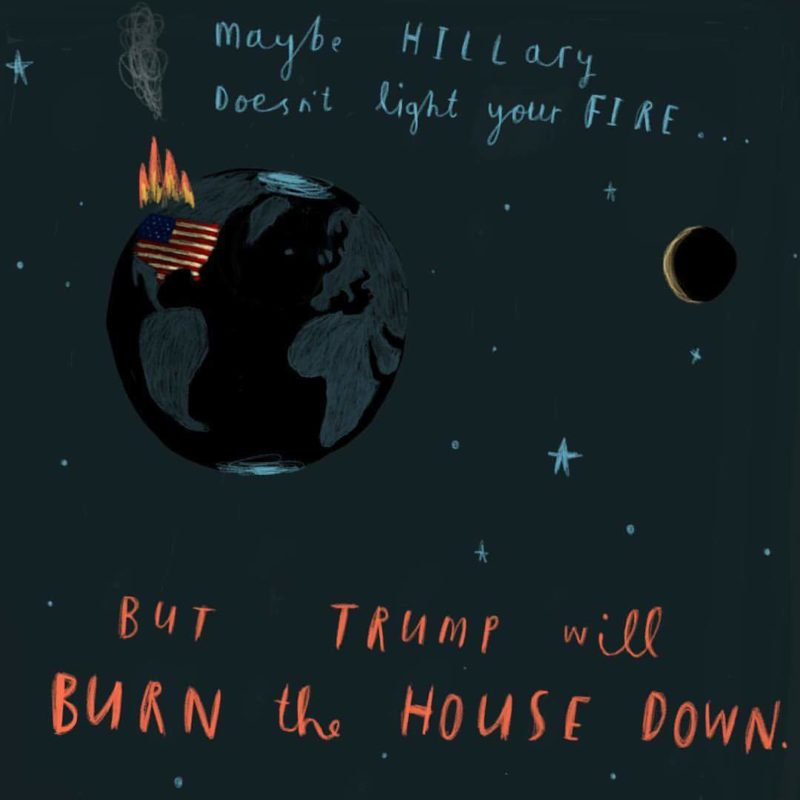 maybe HILLary
Doesn't light your FIRE...
BUT TRUMP will
BURN the HOUSE DOWN.